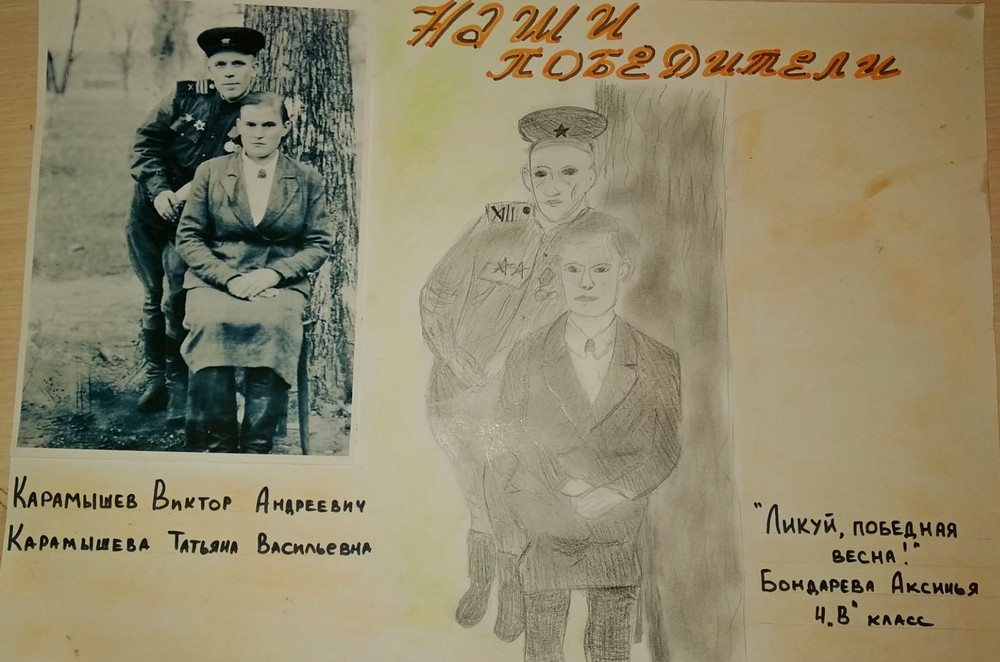 НАШИ
ПОБЕДИТЕЛИ
XII
КАРАМЫШЕВ ВИКТОР АНДРЕЕВИЧ
КАРАМЫШЕВА ТАТЬЯНА ВАСИЛЬЕВНА
"ЛИКУЙ, ПОБЕДНАЯ
ВЕСНА!"
БОНДАРЕВА АКСИНЬЯ
4.В" КЛАСС